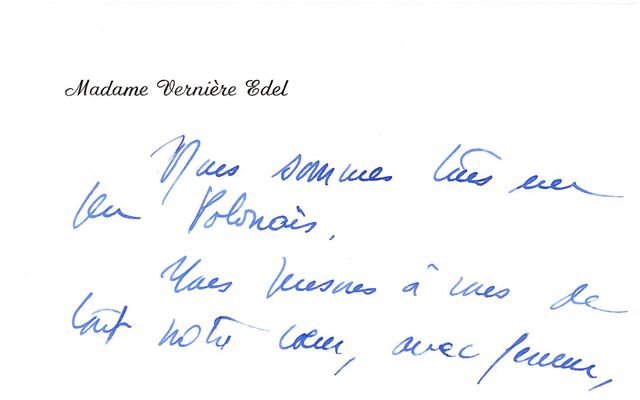 Madame Vernière Edel
Nous sommes tous un
peu Polonais.
Nous pensons à vous de
tout notre cœur, avec ferveur,